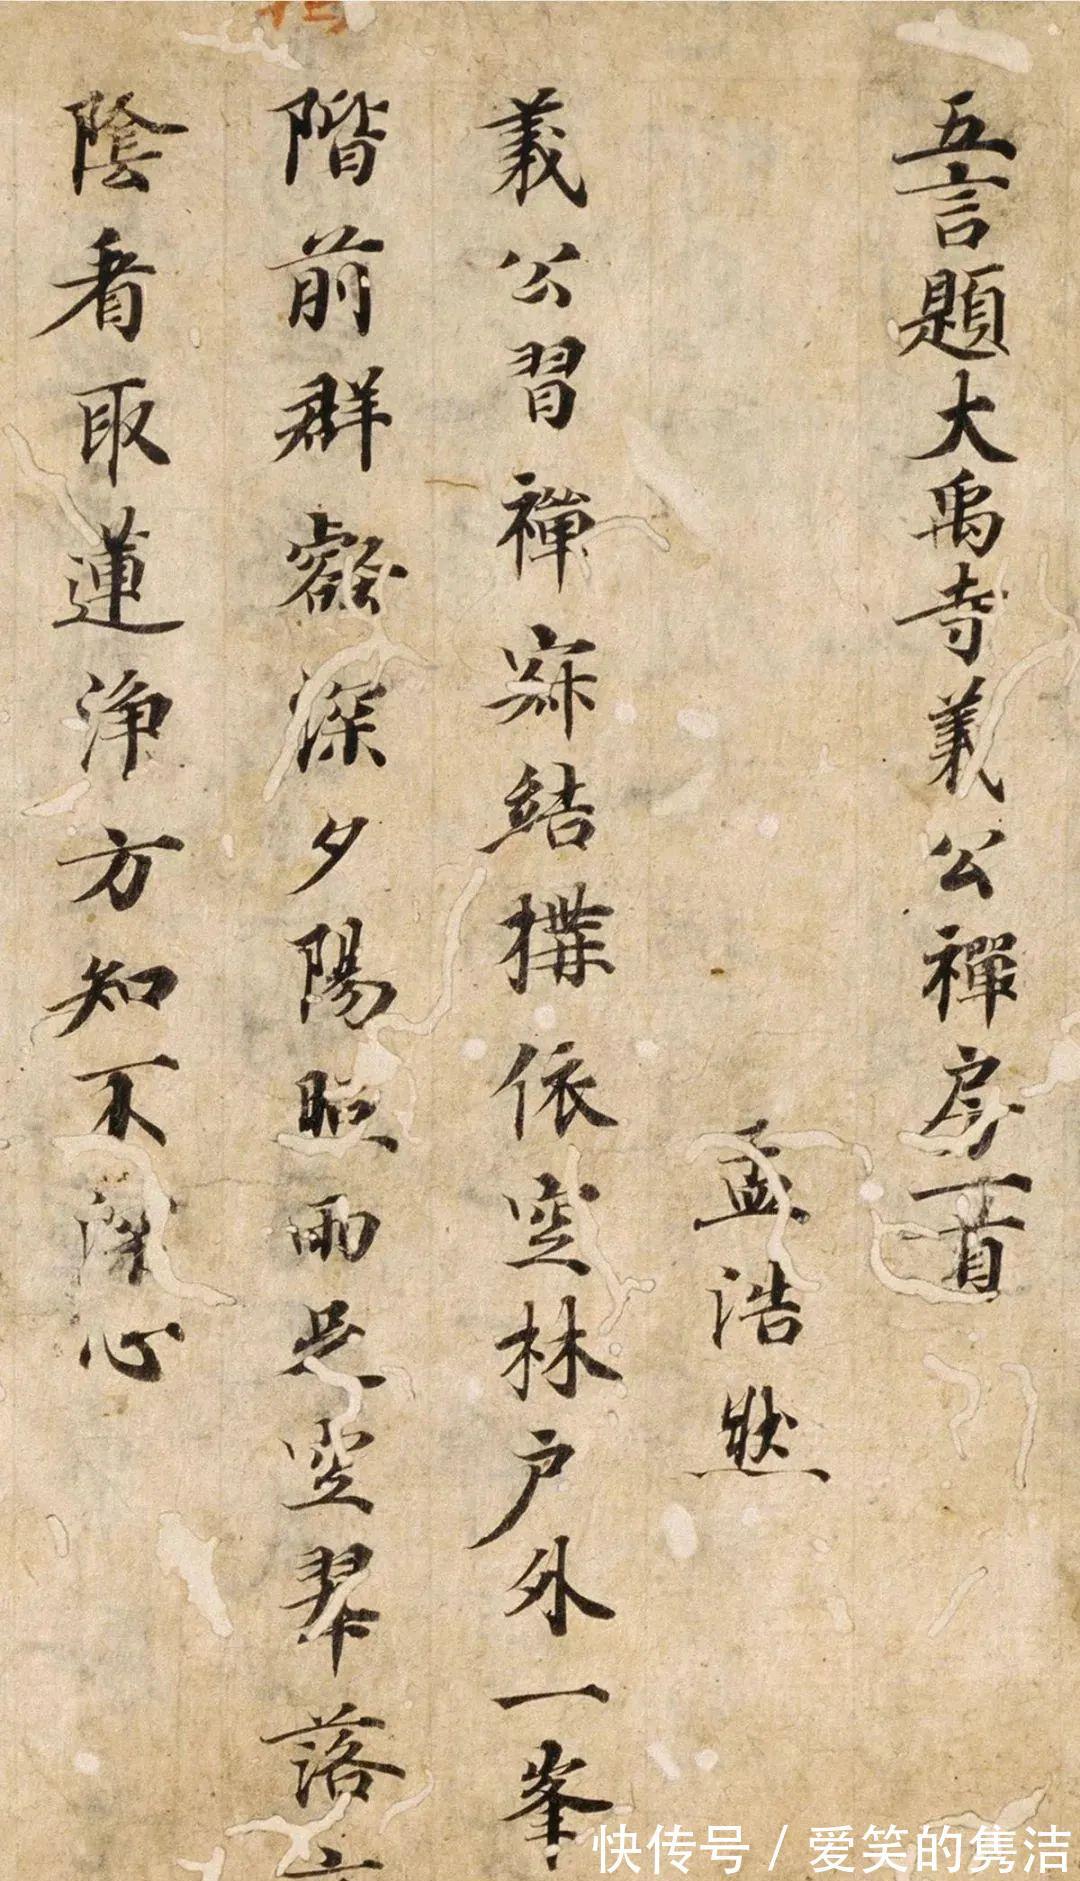 五言題大禹寺義公禪房一首
孟浩然
義公習禪寂結搆依空林戶外一峯
階前群壑深夕陽照雨足空翠落
陰看取蓮淨方知不心
快传号 / 爱笑的隽洁